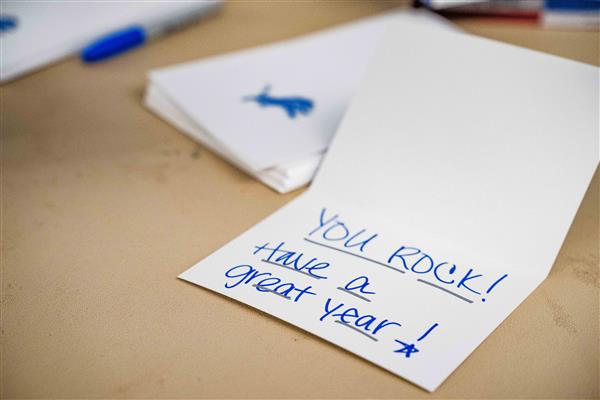 YOU ROCK!
Have a
great year!